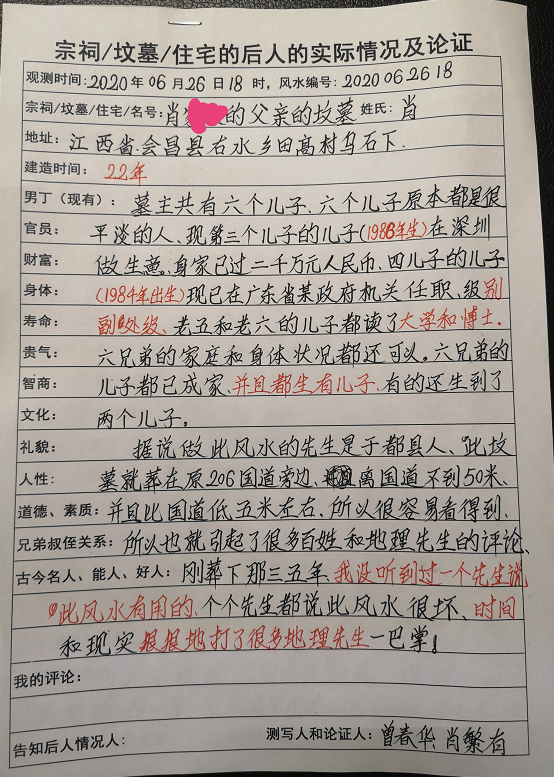 宗祠/坟墓/住宅的后人的实际情况及论证
观测时间:2020年06月26日18时,风水编号:2020062618
宗祠/坟墓/住宅/名号:肖 的父亲的坟墓 姓氏:肖
地址:江西省会昌县右水乡田高村乌石下.
建造时间:22年
男丁(现有):墓主共有六个儿子、六个儿子原本都是很
官员:平淡的人、现第三个儿子的儿子(1986年生)在深圳
财富:做生意、身家已过二千万元人民币、四儿子的儿子
身体:(1984年出生)现已在广东省某政府机关任职、级别
寿命:副处级、老五和老六的儿子都读了大学和博士.
贵气:六兄弟的家庭和身体状况都还可以。六兄弟的
智商:儿子都已成家、并且都生有儿子、有的还生到了
文化:两个儿子。
礼貌:据说做此风水的先生是于都县人、此坟
人性:墓就葬在原206国道旁边、离国道不到50米、
道德、素质:并且比国道低五米左右、所以很容易看得到、
兄弟叔侄关系:所以也就引起了很多百姓和地理先生的评论、
古今名人、能人、好人:刚葬下那三五年、我没听到过一个先生说
此风水有用的、个个先生都说此风水很坏、时间
和现实狠狠地打了很多地理先生一巴掌!
我的评论:
告知后人情况人: 测写人和论证人:曾春华 肖繁有